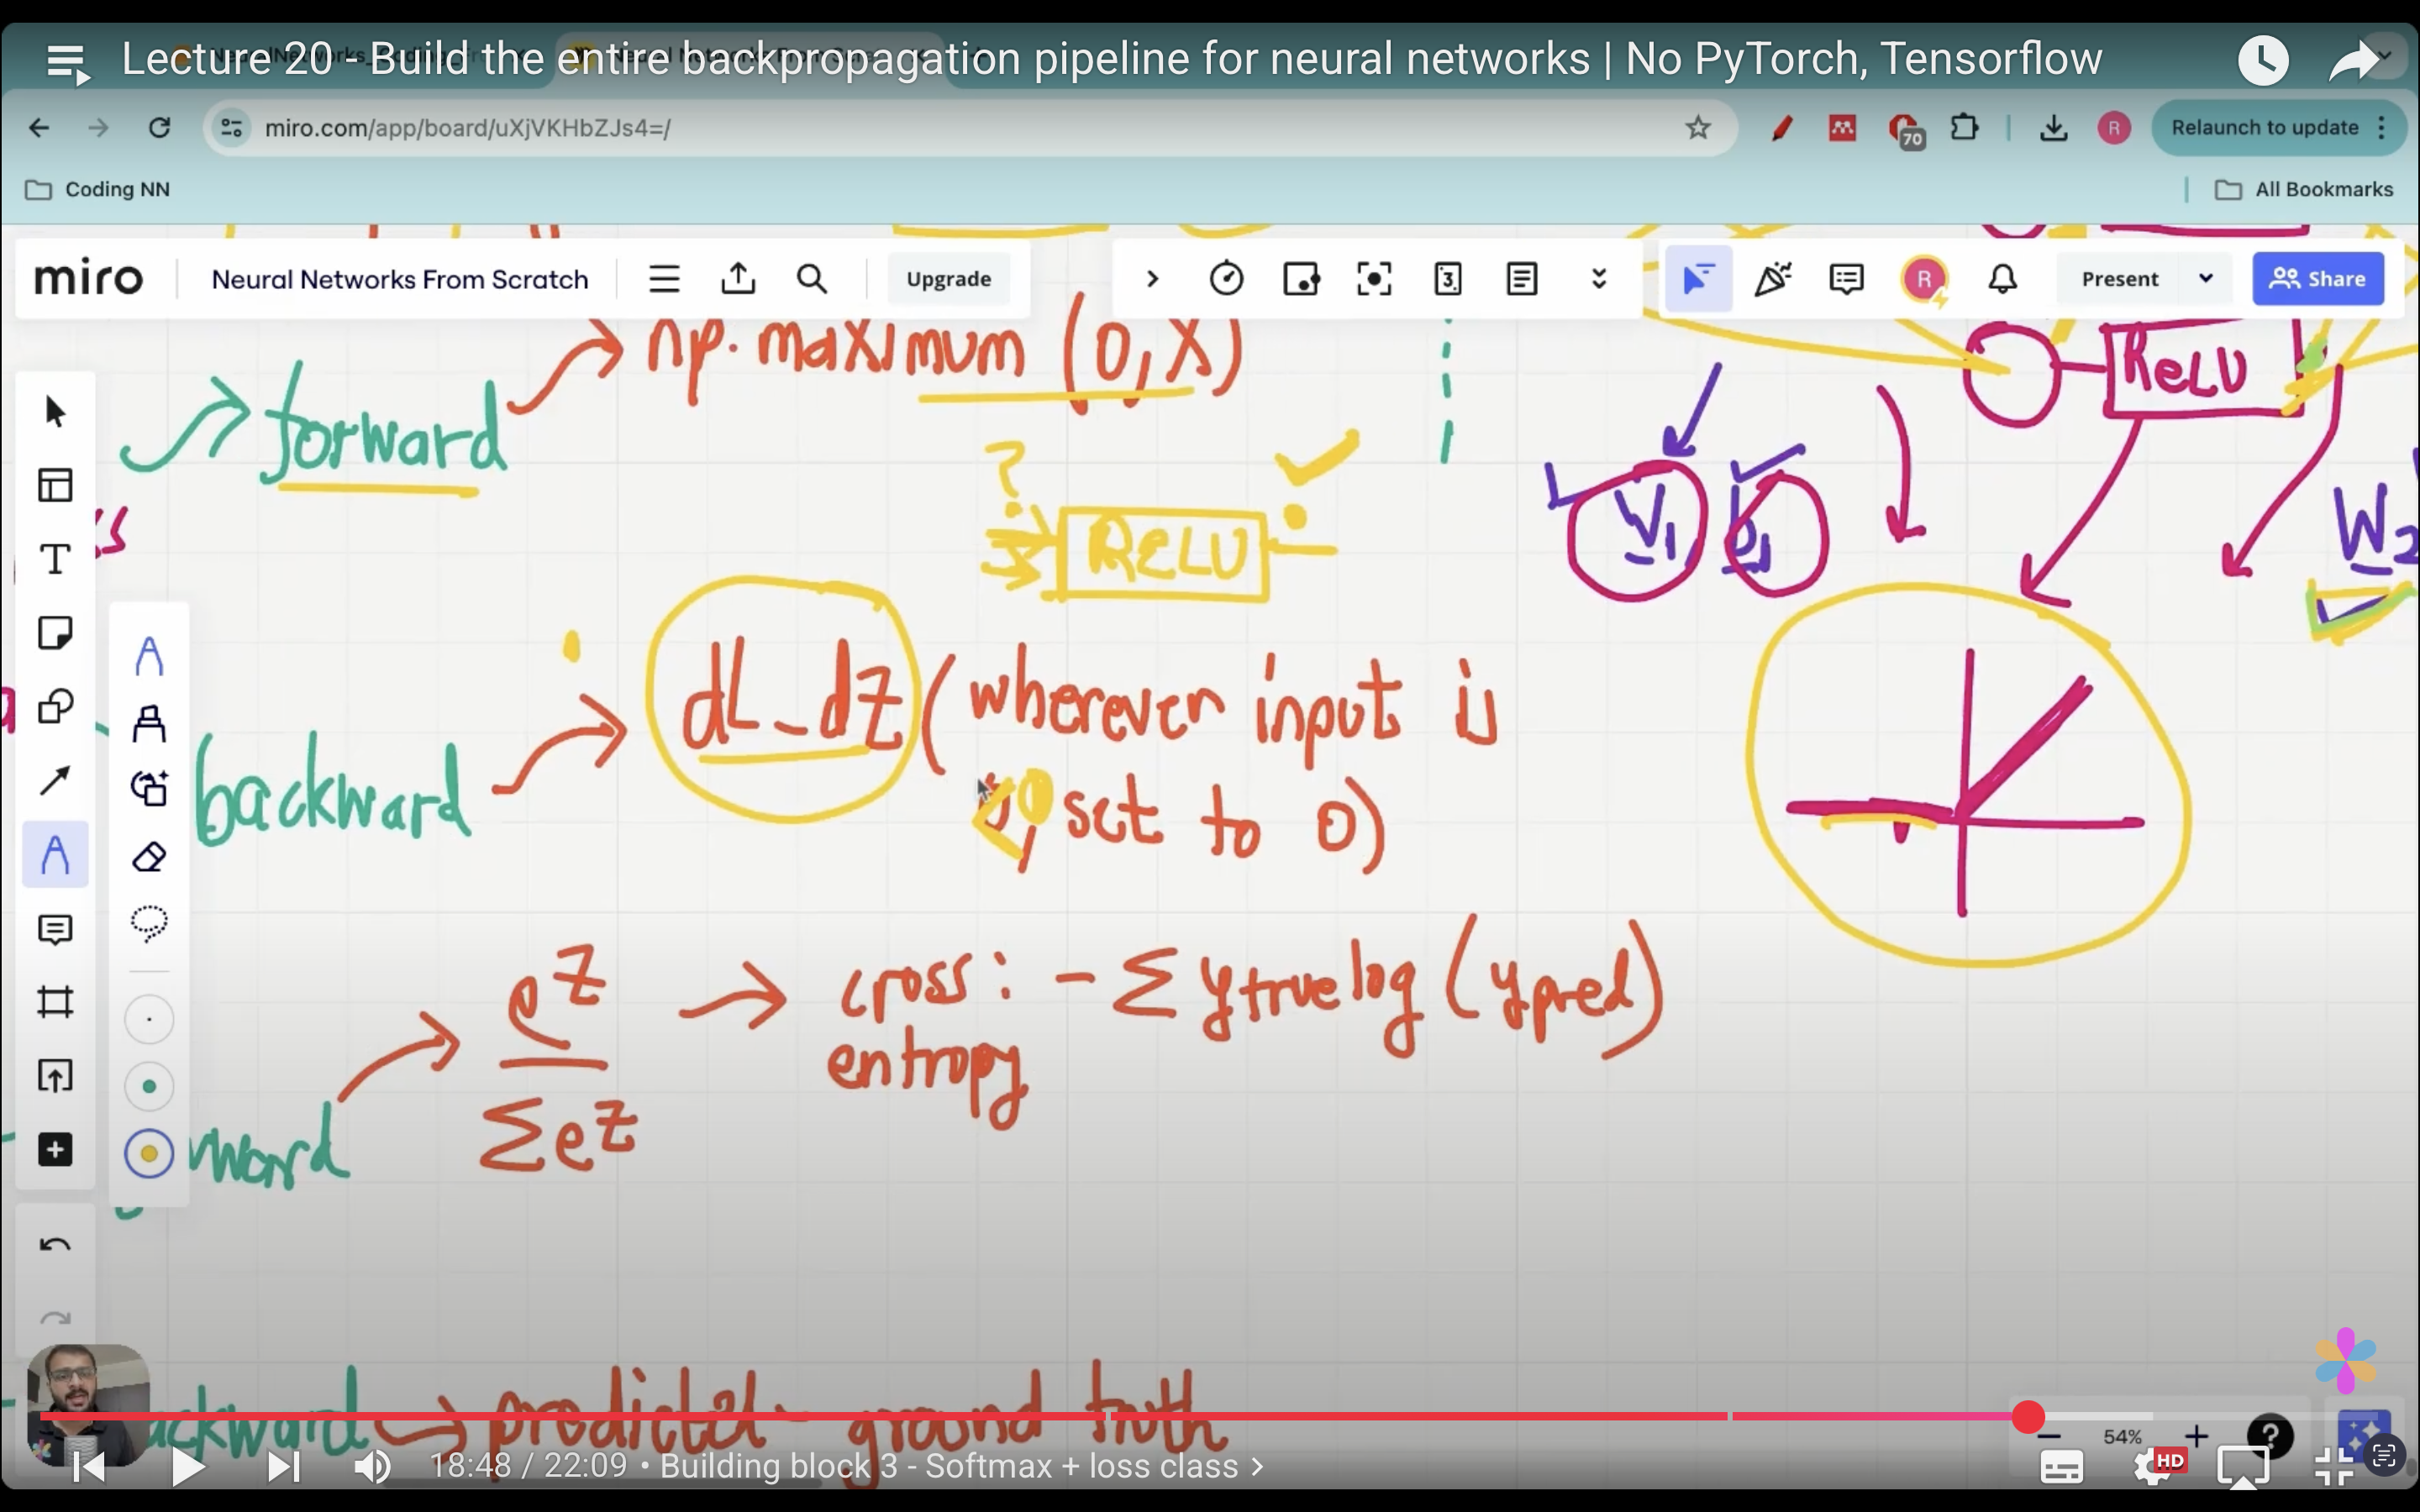 Lecture 20 - Build the entire backpropagation pipeline for neural networks | No PyTorch, Tensorflow
miro.com/app/board/uXjVKHbZJs4=/
70
R
Relaunch to update
Coding NN
All Bookmarks
miro
Neural Networks From Scratch
Upgrade
3
R
Present
Share
np. maximum (0, X)
forward
ReLU
?
ReLU
W1, b1
W2
dL_dz (wherever input is
<0, set to 0)
backward
e^z
Σe^z
cross: - Σ ytrue log (ypred)
entropy
ward
ackward
predicted - ground truth
54%
?
18:48 / 22:09 • Building block 3 - Softmax + loss class >
HD